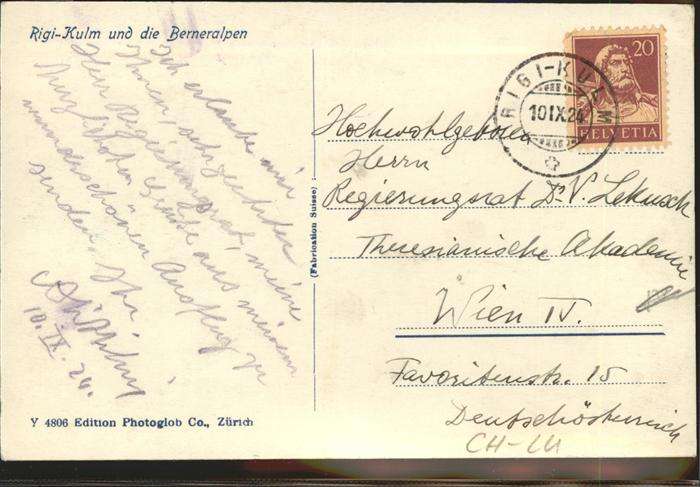 Rigi-Kulm und die Berneralpen
Ich erlaube mir
Ihnen, hochgeehrter
Herr Regierungsrat, meine
Grüsse aus meinem
wunderschönen Ausflug zu
senden. Ihr
10. IX. 24.
Y 4806 Edition Photoglob Co., Zürich
(Fabrication Suisse)
20
HELVETIA
RIGI-KULM
10 IX.24
Hochwohlgeboren
Herrn
Regierungsrat Dr. V. Lekusch
Theresianische Akademie
Wien IV.
Favoritenstr. 15
Deutschösterreich
CH-LU